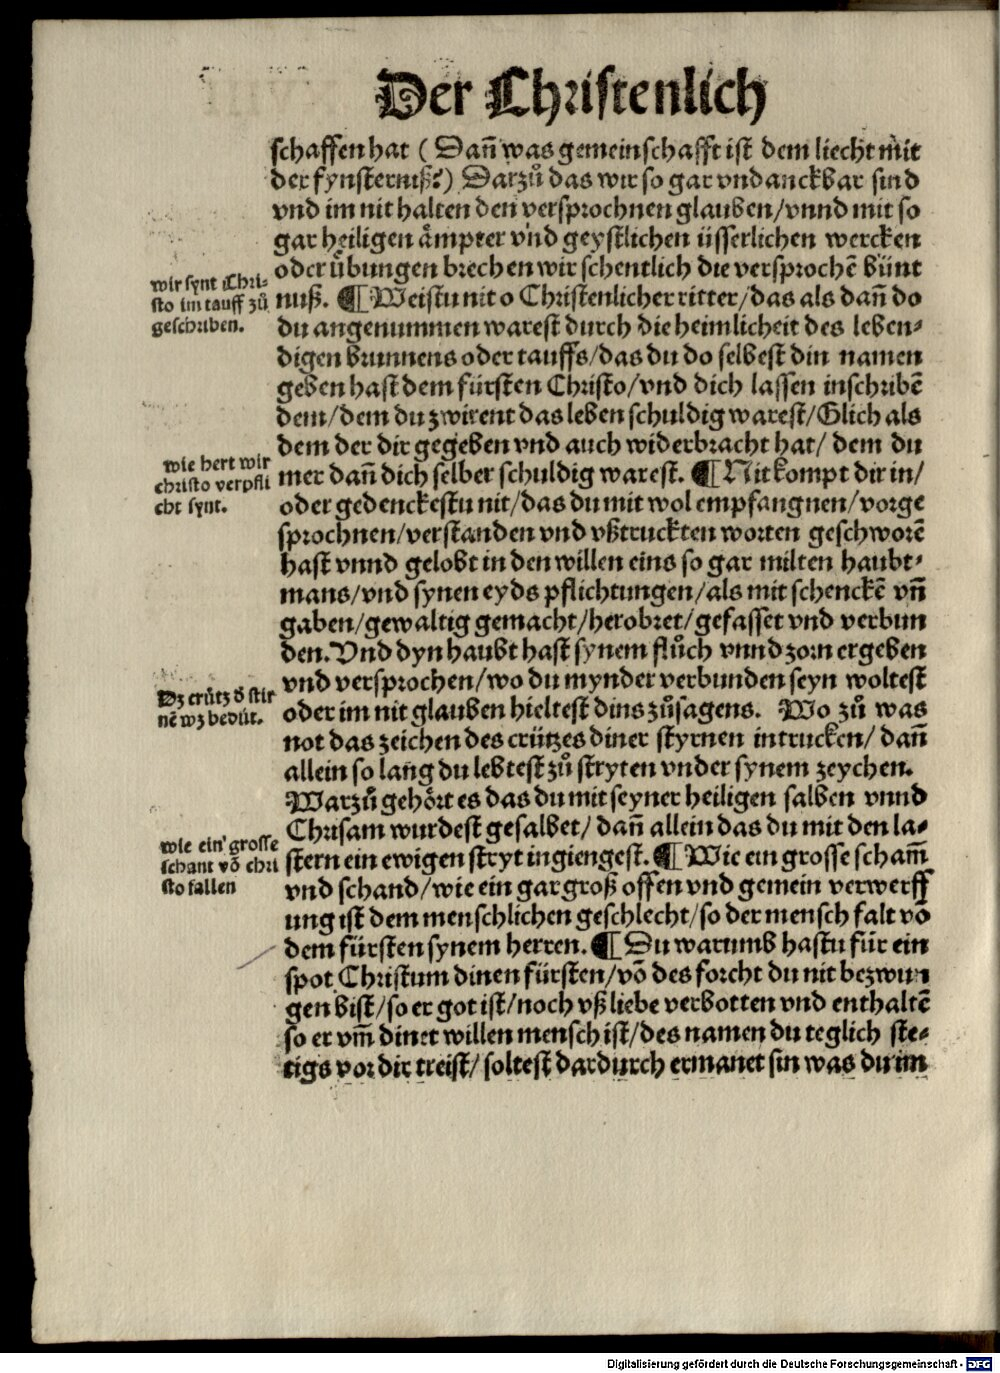 Der Christenlich
schaffen hat ( Dañ was gemeinschafft ist dem liecht mit
der fynsterniß?) Darzů das wir so gar vndanckbar sind
vnd im nit halten den versprochnen glauben/vnnd mit so
gar heiligen åmpter vnd geystlichen üsserlichen wercken
oder übungen brechen wir schentlich die versprochē bünt
nuß. ¶ Weistu nit o Christenlicher ritter/das als dañ do
du angenummen warest durch die heimlicheit des leben⸗
digen brunnens oder tauffs/das du do selbest din namen
geben hast dem fürsten Christo/vnd dich lassen inschribē
dem/dem du zwirent das leben schuldig warest/Glich als
dem der dir gegeben vnd auch widerbracht hat/ dem du
mer dañ dich selber schuldig warest. ¶ Nit kompt dir in/
oder gedenckestu nit/das du mit wol empfangnen/vorge
sprochnen/verstanden vnd vßtruckten worten geschworē
hast vnnd gelobt in den willen eins so gar milten haubt⸗
mans/vnd synen eyds pflichtungen/als mit schenckē vñ
gaben/gewaltig gemacht/herobret/gefasset vnd verbun
den. Vnd dyn haubt hast synem flůch vnnd zorn ergeben
vnd versprochen/wo du mynder verbunden seyn woltest
oder im nit glauben hieltest dins zůsagens. Wo zů was
not das zeichen des crützes diner styrnen intrucken/ dañ
allein so lang du lebtest zů stryten vnder synem zeychen.
Warzů gehört es das du mit seyner heiligen salben vnnd
Chrisam wurdest gesalbet/ dañ allein das du mit den la⸗
stern ein ewigen stryt ingiengest. ¶ Wie ein grosse scham̄
vnd schand/wie ein gar groß offen vnd gemein verwerff
ung ist dem menschlichen geschlecht/so der mensch falt vō
dem fürsten synem herren. ¶ Du warumb hastu für ein
spot Christum dinen fürsten/vō des forcht du nit bezwun
gen bist/so er got ist/noch vß liebe verbotten vnd enthaltē
so er vm̄ dinet willen mensch ist/des namen du teglich ste⸗
tigs vor dir treist/ soltest dardurch ermanet sin was du im
wir synt Chri⸗
sto im tauff zů
geschriben.
wie hert wir
christo verpfli
cht synt.
Dz crütz ð stir
nē wz bedüt.
wie ein grosse
schant vō chri
sto fallen
Digitalisierung gefördert durch die Deutsche Forschungsgemeinschaft - DFG